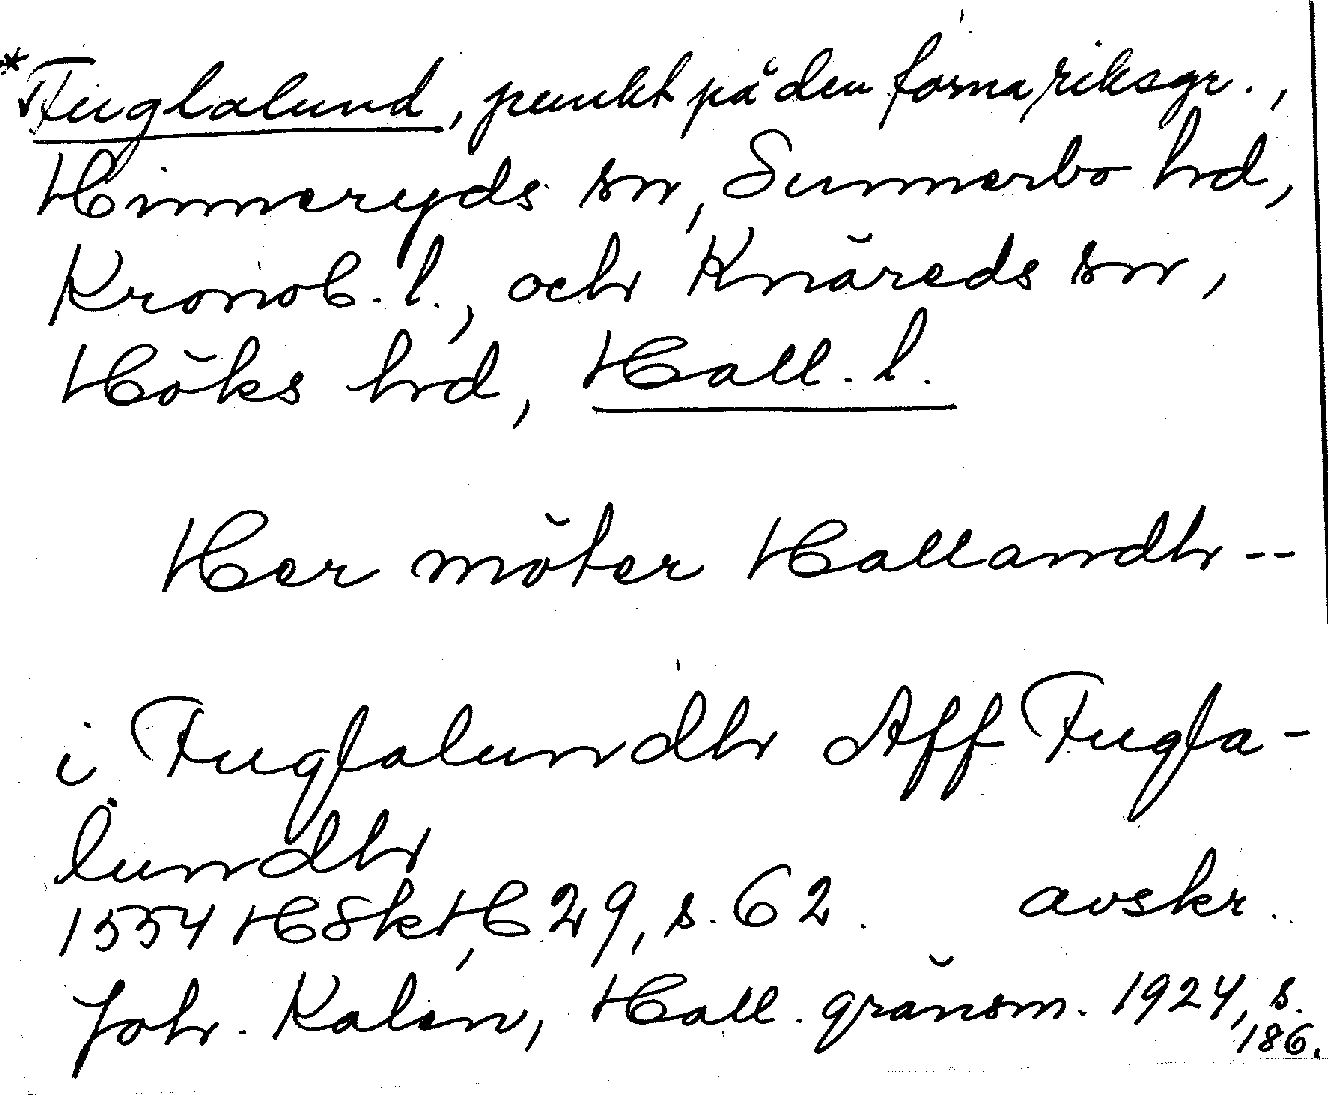 *Fuglalund, punkt på den forna riksgr.,
Hinneryds sn, Sunnerbo hd,
Kronob. l., och Knäreds sn,
Höks hd, Hall. l.
Her möter Hallandh --
i Fuglalundh Aff Fugla-
lundh
1554 H 29, s. 62. avskr.
Joh. Kalén, Hall. gränsm. 1924, s.
186.